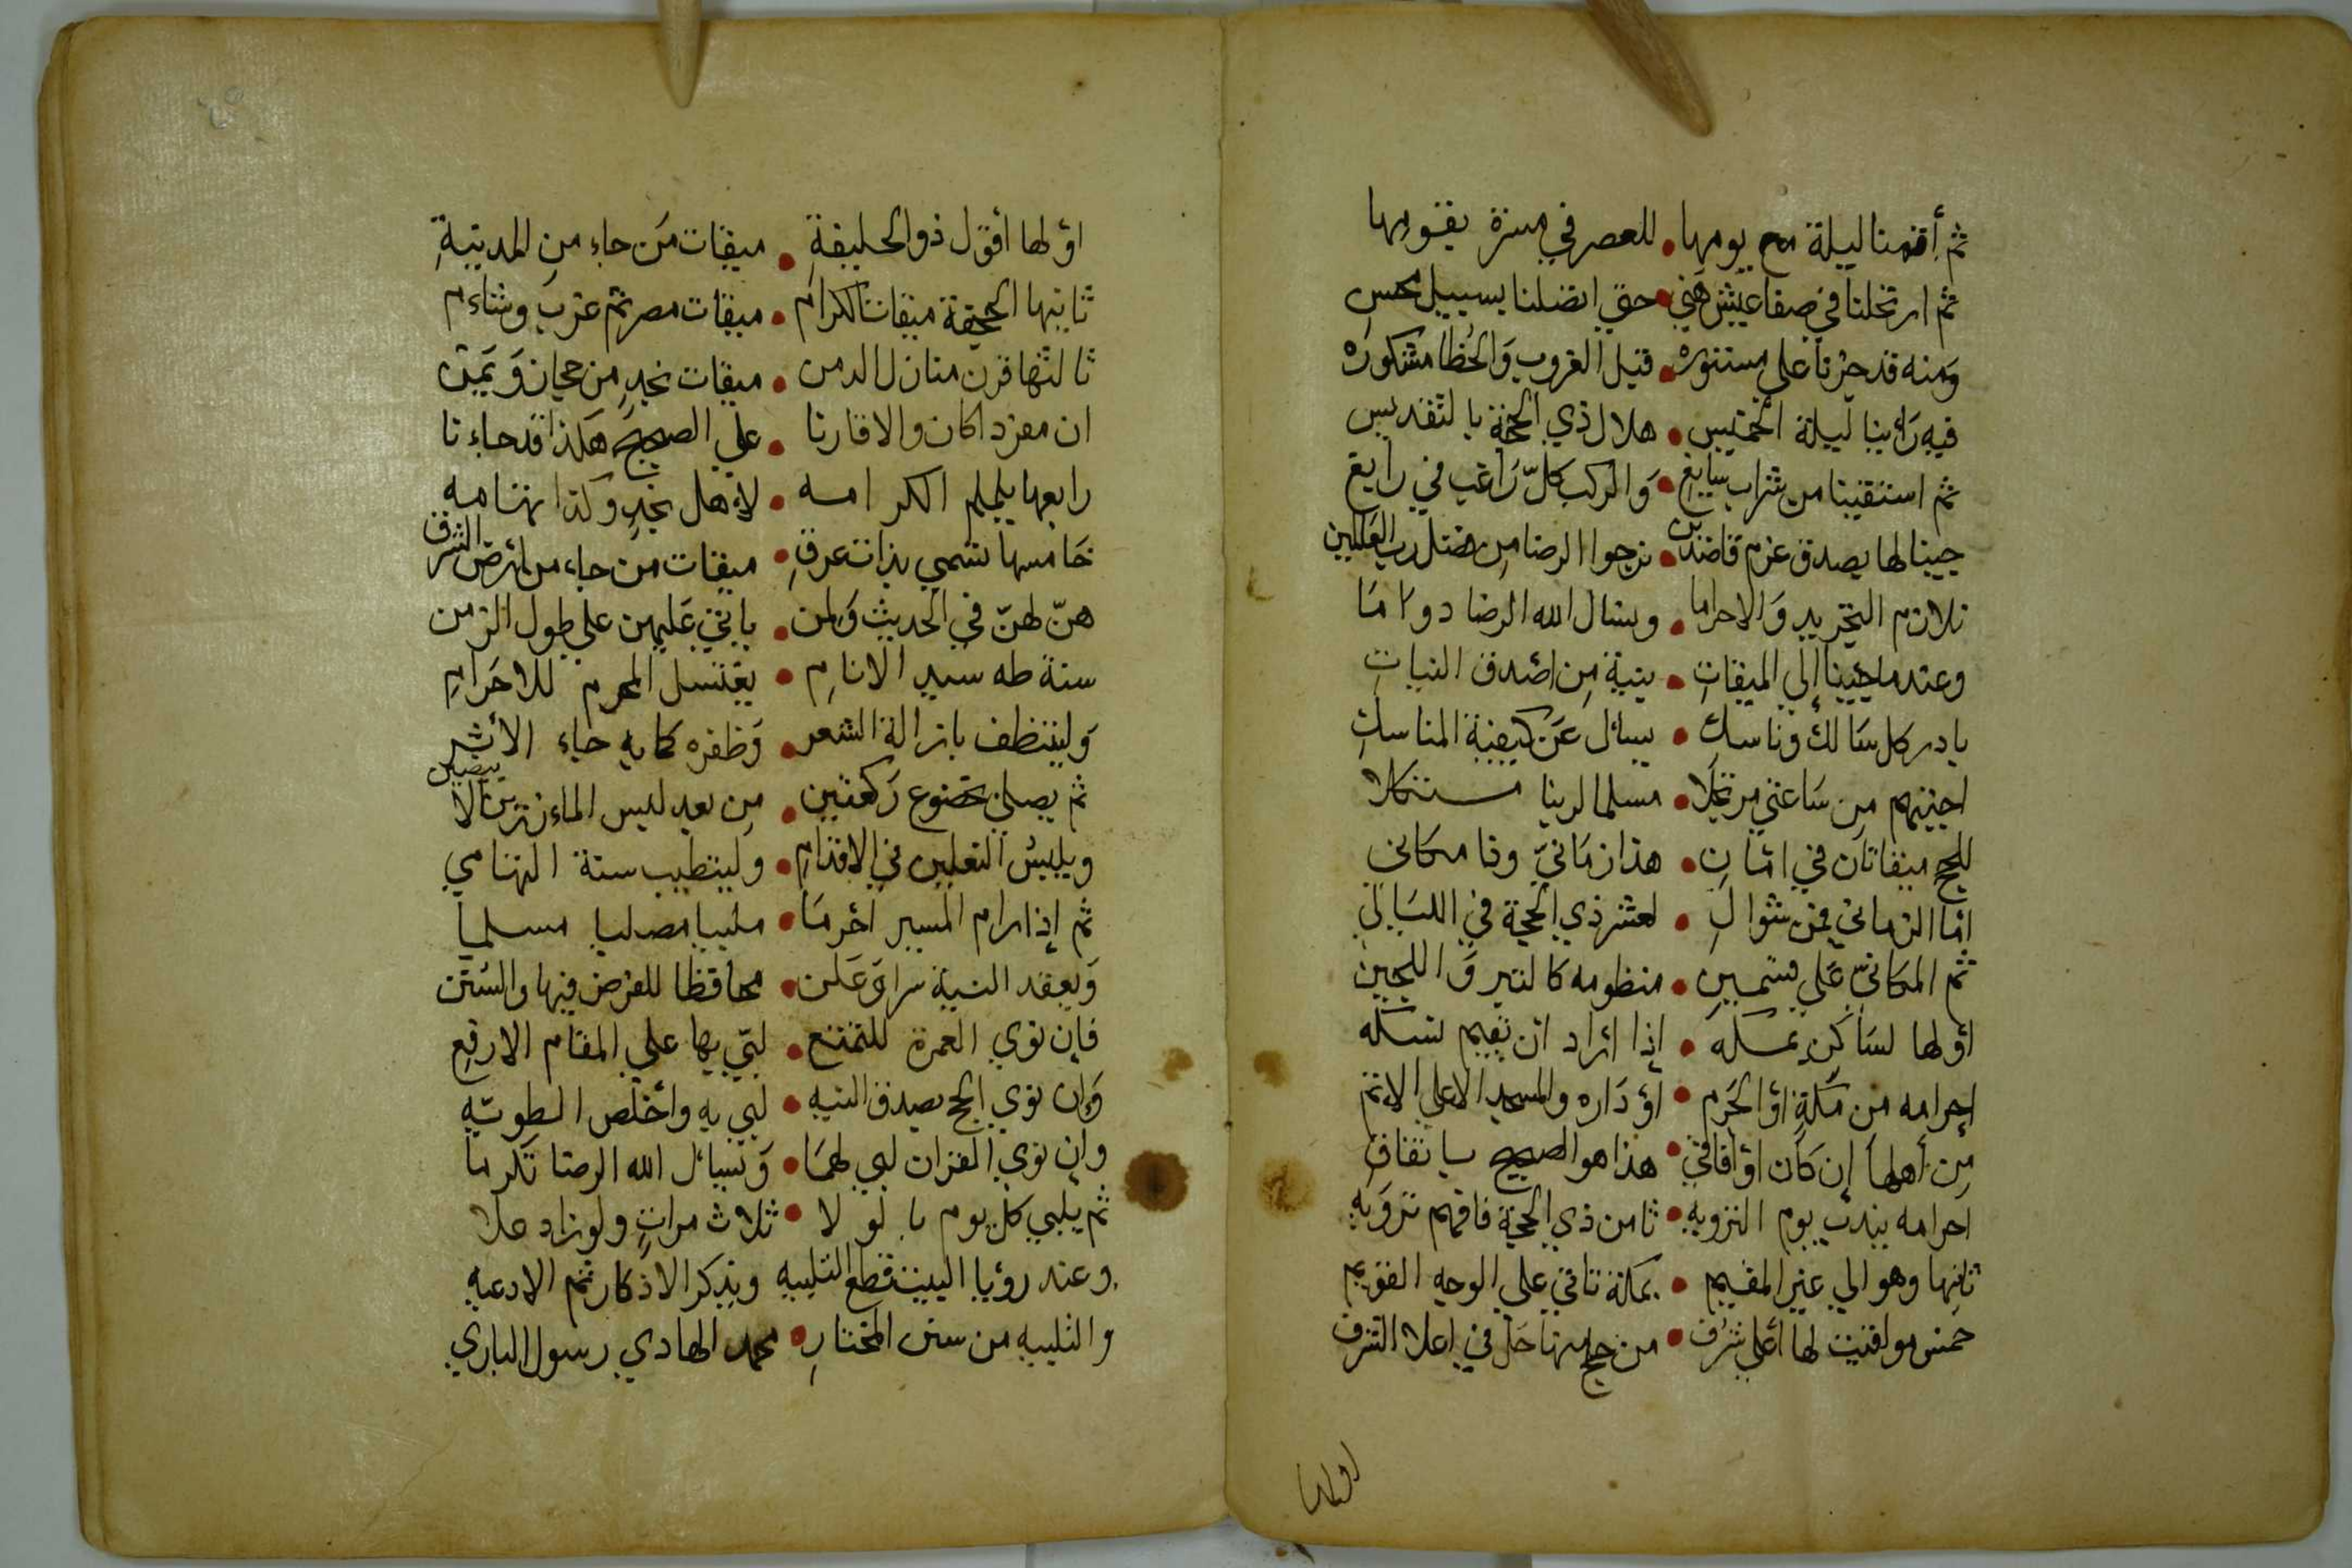 ثم أقمنا ليلة مع يومها • للعصر في مسرة بقومها
ثم ارتحلنا في صفا عيش هني • حتى اتصلنا بسبيل محسن
ومنه قد حزنا على مستوره • قبل الغروب والخطا مشكوره
فيه رأينا ليلة الخميس • هلال ذي الحجة بالتقديس
ثم استقينا من شراب سايغ • والركب كل راغب في رابغ
جينا لها بصدق عزم قاصدين • نرجوا الرضا من فضل رب العالمين
نلازم التجريد والاحراما • ونسال الله الرضا دواما
وعندما جينا إلى الميقات • بنية من اصدق النيات
بادر كل سالك وناسك • يسأل عن كيفية المناسك
اجبتهم من ساعتي مرتجلا • مسلما لربنا متكلا
للحج ميقاتان في امان • هذا زماني وذا مكاني
اما الزماني فمن شوال • لعشر ذي الحجة في الليالي
ثم المكاني على قسمين • منظومه كالتبر واللجين
اولها لساكن بمكه • إذا اراد ان يقيم نسكه
إحرامه من مكة او الحرم • او داره والمسجد الاعلى الاتم
من أهلها إن كان او آفاقي • هذا هو الصحيح باتفاق
احرامه يندب يوم الترويه • ثامن ذي الحجة فافهم ترويه
ثانيها وهو الى غير المقيم • بمكة تاتي على الوجه القويم
خمس مواقيت لها أعلى شرف • من حج منها حل في اعلا الشرف
اولها
اولها اقول ذو الحليفة • ميقات من جاء من المدينة
ثانيها الجحفة ميقات الكرام • ميقات مصر ثم غرب وشاءم
ثالثها قرن منازل الدمن • ميقات نجد من حجاز ويمن
ان مفردا كان والا قارنا • على الصحيح هكذا قد جاءنا
رابعها يلملم الكرامه • لأهل نجد وكذا تهامه
خامسها تسمي بذات عرق • ميقات من جاء من ارض الشرق
هن لهن في الحديث ولمن • ياتي عليهن على طول الزمن
سنة طه سيد الانام • يغتسل المحرم للاحرام
ولينتظف بازالة الشعر • وظفره كما به جاء الأثر
ثم يصلي بخضوع ركعتين • من بعد لبس المازرين الابيضين
ويلبس النعلين في الاقدام • وليتطيب سنة التهامي
ثم إذا رام المسير احرما • ملبيا مصليا مسلما
ويعقد النية سرا وعلن • محافظا للفرض فيها والسنن
فإن نوى العمرة للتمتع • لبى بها على المقام الارفع
وان نوى الحج بصدق النيه • لبى به واخلص الطويه
وان نوى القران لبى لهما • ونسأل الله الرضا تكرما
ثم يلبي كل يوم بالولا • ثلاث مرات ولو زاد علا
وعند رؤيا البيت قطع التلبيه ويذكر الاذكار ثم الادعيه
والتلبيه من سنن المختار • محمد الهادي رسول الباري